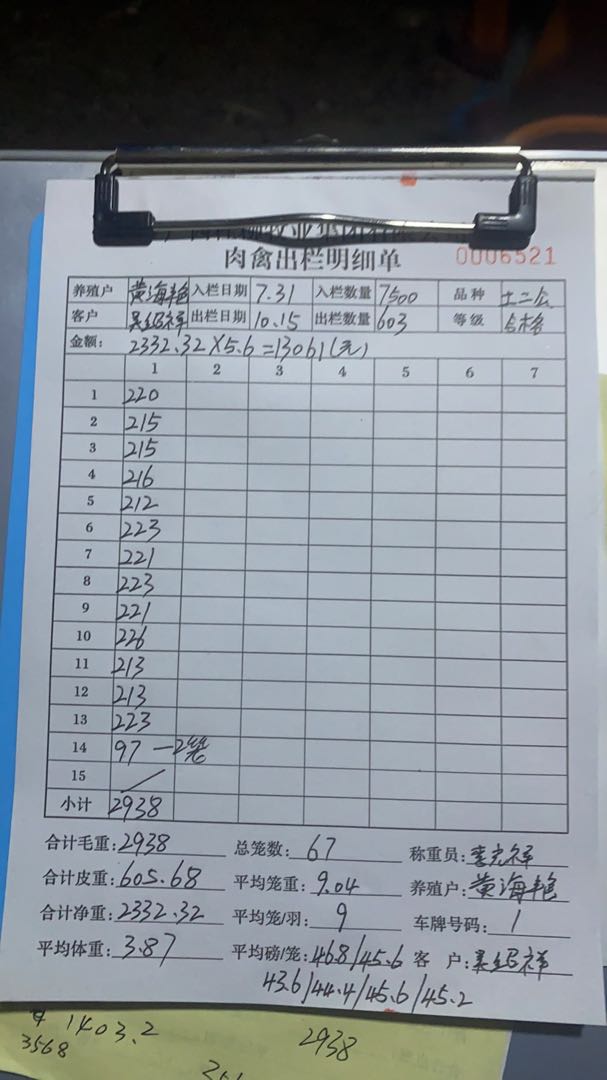 肉禽出栏明细单 0006521
养殖户 黄海艳 入栏日期 7.31 入栏数量 7500 品种 土二公
客户 吴绍祥 出栏日期 10.15 出栏数量 603 等级 合格
金额: 2332.32×5.6=13061(元)
1 2 3 4 5 6 7
1 220
2 215
3 215
4 216
5 212
6 223
7 221
8 223
9 221
10 226
11 213
12 213
13 223
14 97 —2笼
15 /
小计 2938
合计毛重:2938 总笼数:67 称重员:李宏祥
合计皮重:605.68 平均笼重:9.04 养殖户:黄海艳
合计净重:2332.32 平均笼/羽:9 车牌号码:1
平均体重:3.87 平均磅/笼:46.8/45.6 客户:吴绍祥
43.6/44.4/45.6/45.2
1403.2
3568
2938